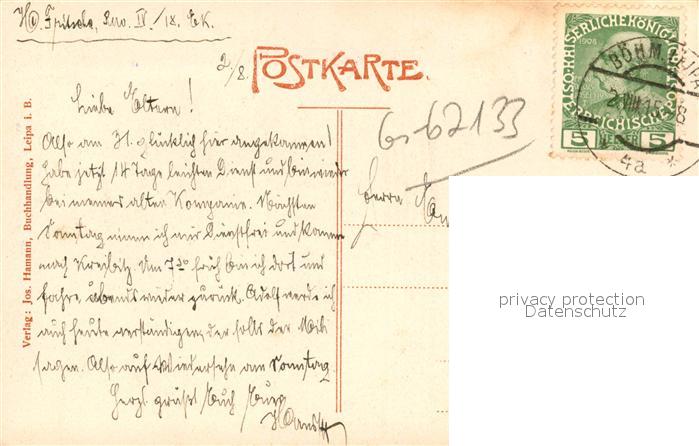 Fritsche, IV/18. EK.
2/8.
POSTKARTE.
Liebe Eltern!
Also am 31. glücklich hier angekommen!
Habe jetzt 14 Tage leichten Dienst und bin wieder
bei meiner alten Kompanie. Nächsten
Sonntag nimm ich mir Dienstfrei und komme
nach Kreibitz. Um 7 früh bin ich dort und
fahre abends wieder zurück. Adolf werde ich
auch heute verständigen, der solls der Mili
sagen. Also auf Wiedersehn am Sonntag.
Herzl. grüßt Euch Euer
Hans
Verlag: Jos. Hamann, Buchhandlung, Leipa i. B.
62133
Herrn
KAISERLICHE KÖNIGL
1908
ÖSTERREICHISCHE POST
5 5
BÖHM. LEIPA
4a
privacy protection
Datenschutz